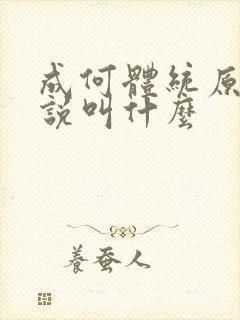 成何體統原
說叫什麼
養蚕人